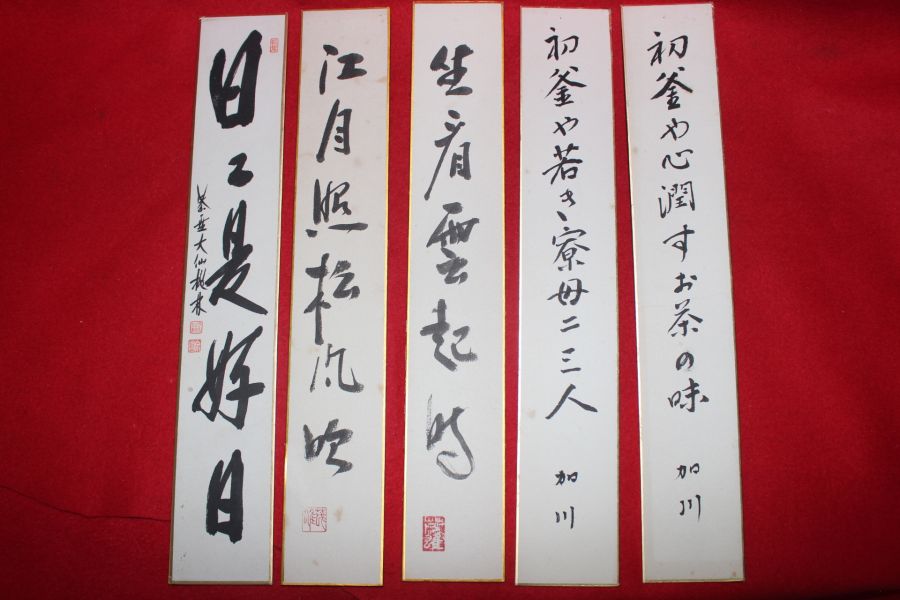 初釜や心潤すお茶の味
加川
初釜や若き寮母二三人
加川
坐看雲起時
江月照松風吹
日々是好日
大仙